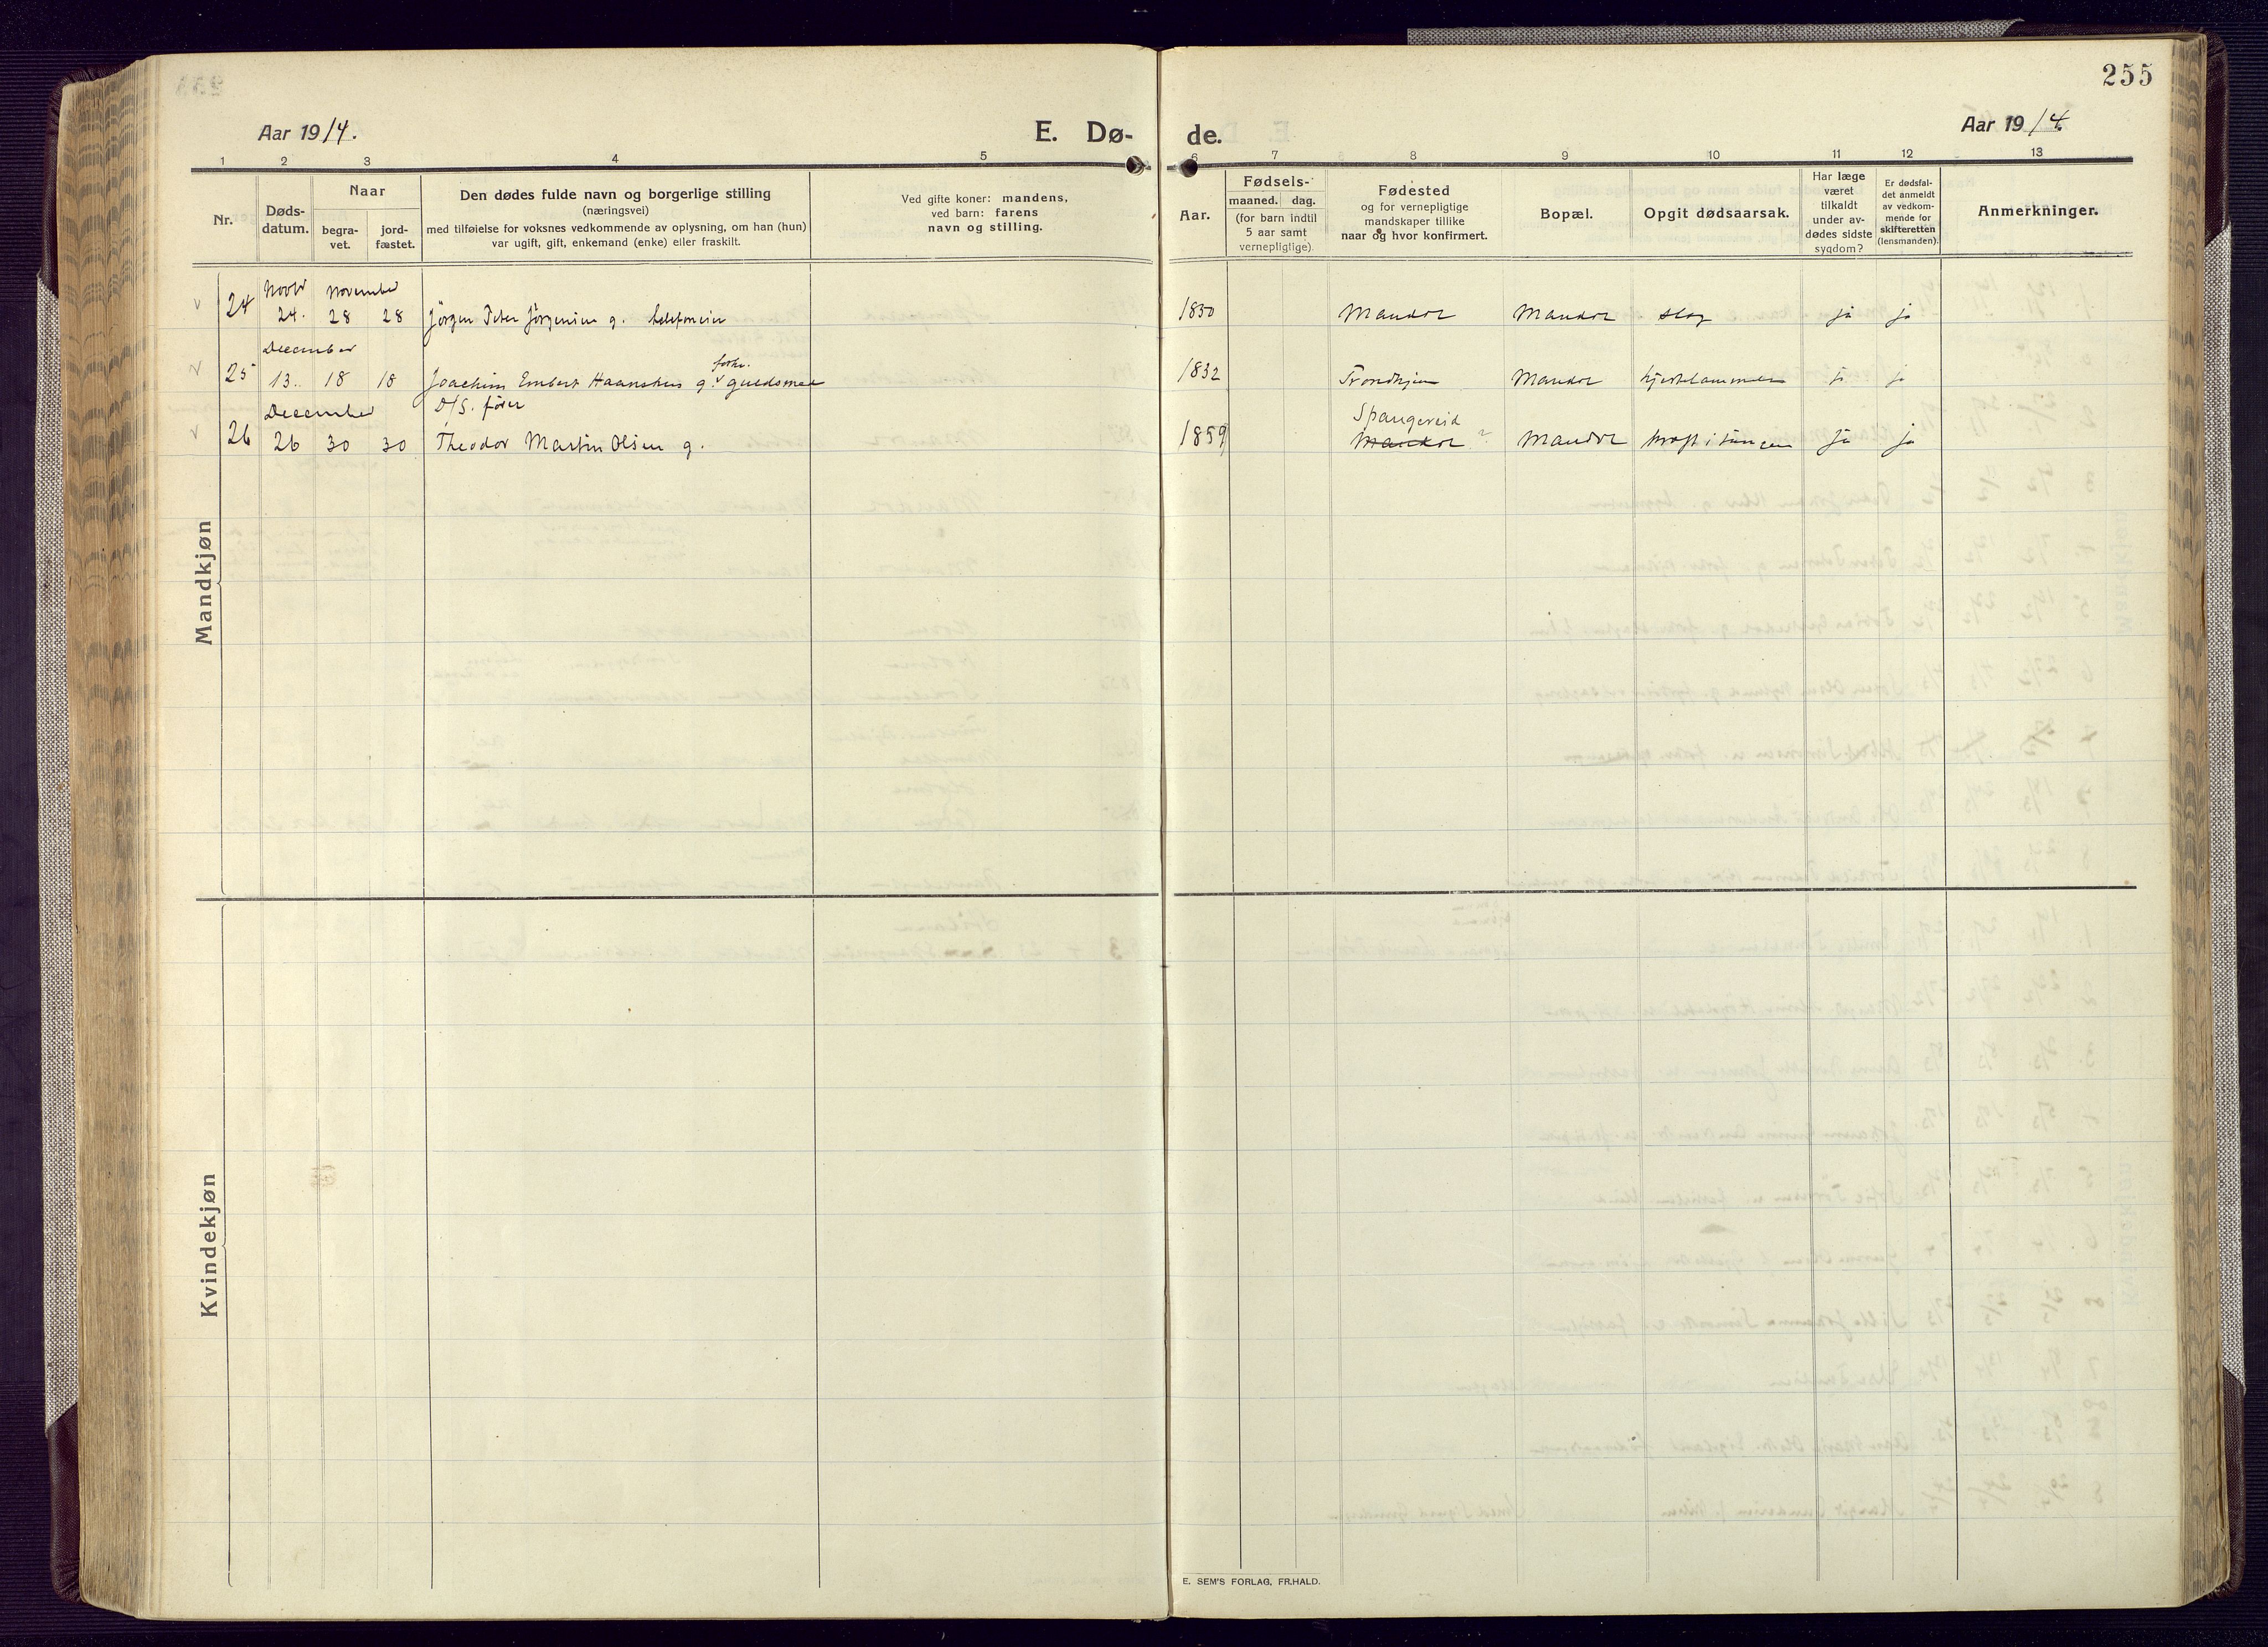 255
Aar 1914.
E. Dø-
de.
Aar 1914.
1 2 3 4 5 6 7 8 9 10 11 12 13
Nr.
Døds-
datum.
Naar
begra-
vet.
jord-
fæstet.
Den dødes fulde navn og borgerlige stilling
(næringsvei)
med tilføielse for voksnes vedkommende av oplysning, om han (hun)
var ugift, gift, enkemand (enke) eller fraskilt.
Ved gifte koner: mandens,
ved barn: farens
navn og stilling.
Aar.
Fødsels-
maaned. dag.
(for barn indtil
5 aar samt
vernepligtige).
Fødested
og for vernepligtige
mandskaper tillike
naar og hvor konfirmert.
Bopæl.
Opgit dødsaarsak.
Har læge
været
tilkaldt
under av-
dødes sidste
sygdom?
Er dødsfal-
det anmeldt
av vedkom-
mende for
skifteretten
(lensmanden).
Anmerkninger.
Mandkjøn
Novbr November
24 24. 28 28 Jörgen Peter Jörgensen g. 1850 Mandal Mandal slag ja ja
December
forhv.
25 13. 18 18 Joachim Embert Haanshus g. guldsmed 1832 Trondhjem Mandal ja ja
December D/S. fører Spangereid
26 26 30 30 Theodor Martin Olsen g. 1859 Mandal ? Mandal kræft i tungen ja ja
Kvindekjøn
E. SEM'S FORLAG, FR.HALD.